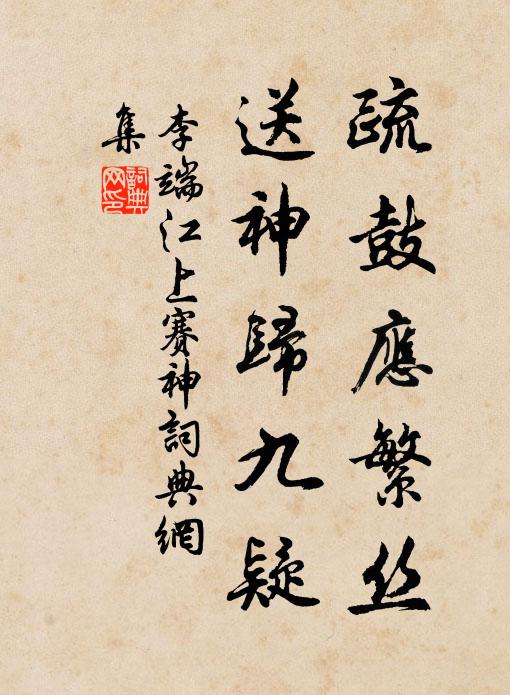 疏鼓應繁丝
送神歸九疑
李端江上赛神詞典網
集
詞典
网印